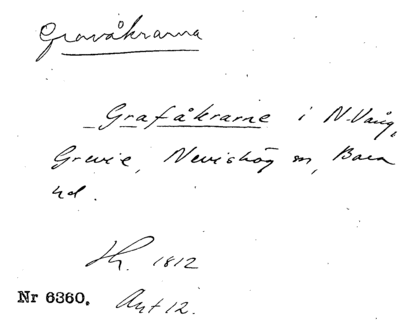 Gravåkrarna
Grafåkrarne i N.Vång,
Grevie, Nevishög sn, Bara
hd.
Hh. 1812
Nr 6360. Akt 12.